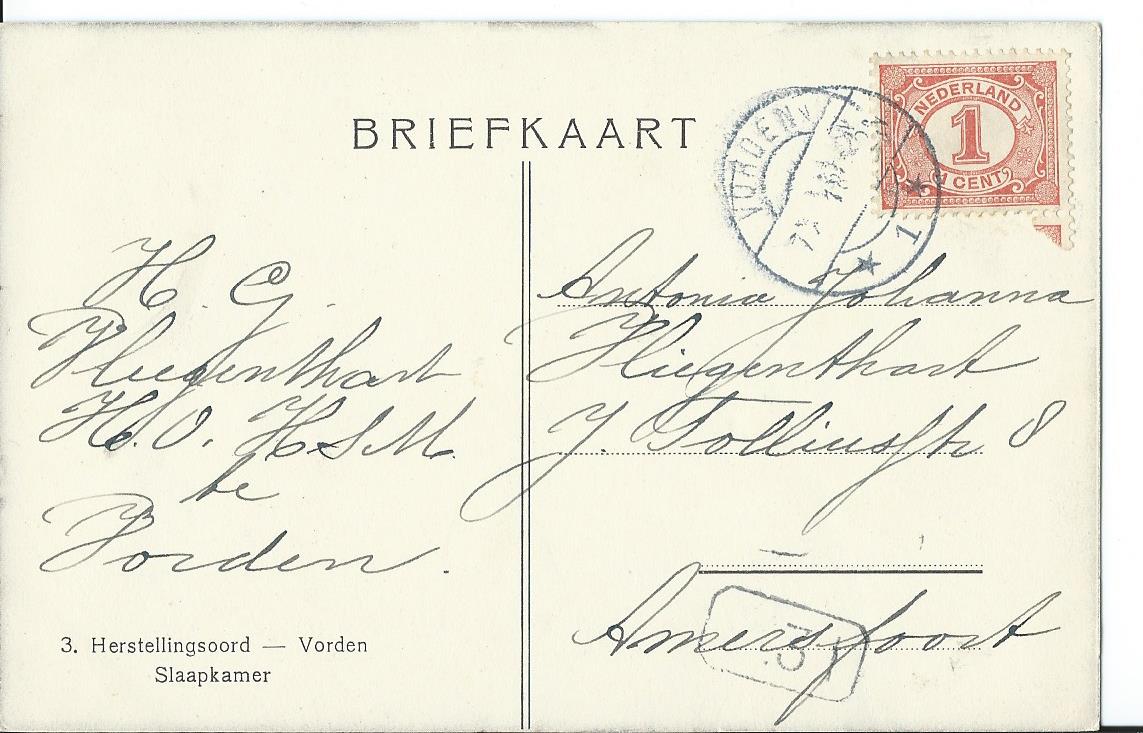 BRIEFKAART
NEDERLAND
1
1 CENT
VORDEN
1
H. G.
Vliegenthart
H.O. HSM.
te
Vorden.
3. Herstellingsoord — Vorden
Slaapkamer
Antonia Johanna
Vliegenthart
J. Tolliusstr 8
Amersfoort